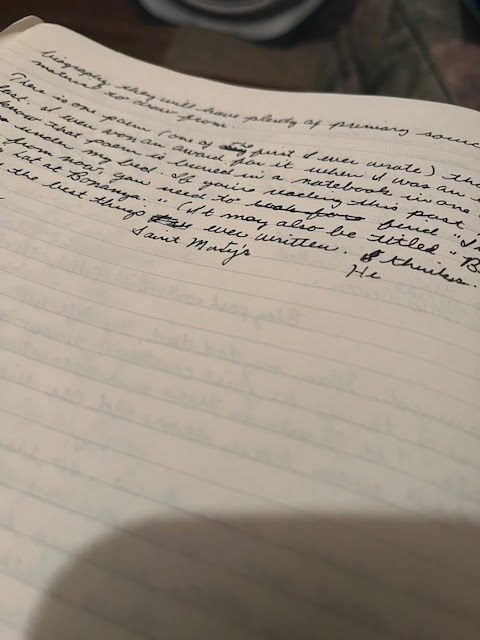 biography, they will have plenty of primary source
material to draw from.
There is one poem (one of the first I ever wrote) tha
lost. I even won an award for it when I was an
know that poem is buried in a notebook in one
under my bed. If you're reading this past
from now, you need to find
at Bonanza." (It may also be titled "B
the best thing ever written.
Saint Marty thinks.
He